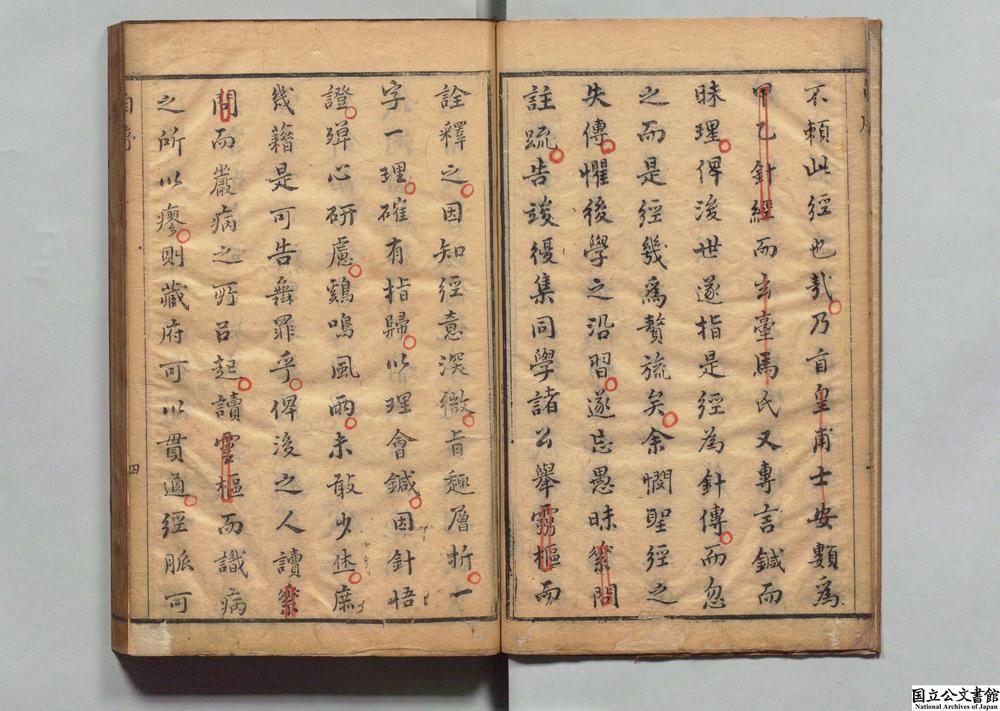 不賴此經也哉乃自皇甫士安類為
甲乙針經而玄臺馬氏又專言鍼而
昧理俾後世遂指是經為針傳而忽
之而是經幾為贅旒矣余憫聖經之
失傳懼後學之沿習遂忘愚昧素問
註疏告竣復集同學諸公舉靈樞而
詮釋之因知經意深微旨趣層析一
字一理確有指歸以理會鍼因針悟
證殫心研慮雞鳴風雨未敢少休庶
幾藉是可告無罪乎俾後之人讀素
問而嚴病之所㠯起讀靈樞而識病
之所以瘳則藏府可以貫通經脈可
自序
四
国立公文書館
National Archives of Japan